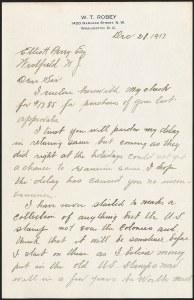 W. T. ROBEY
1420 HARVARD STREET N. W.
WASHINGTON D. C.
Dec 28 1917
Elliott Perry Esq
Westfield N. J.
Dear Sir
I enclose herewith my check
for $17.85 for purchase of your last
approvals
I trust you will pardon my delay
in returning same but coming as they
did right at the holidays could not get
a chance to examine same I hope
the delay has caused you no inconvenience
I have now started to make a
collection of anything but the U.S.
stamps not even the Colonies and
think that it will be sometime before
I start on them as I believe money
put in the old U.S. Stamps
well in a few years be worth more